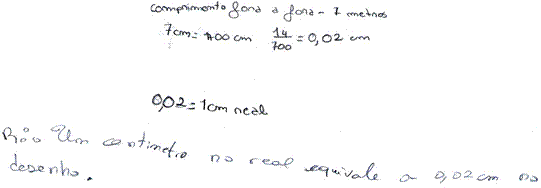 comprimento fora a fora - 7 metros
7cm = 700cm 14/700 = 0,02 cm
0,02 = 1cm real
R:. Um centimetro no real equivale a 0,02 cm no
desenho.